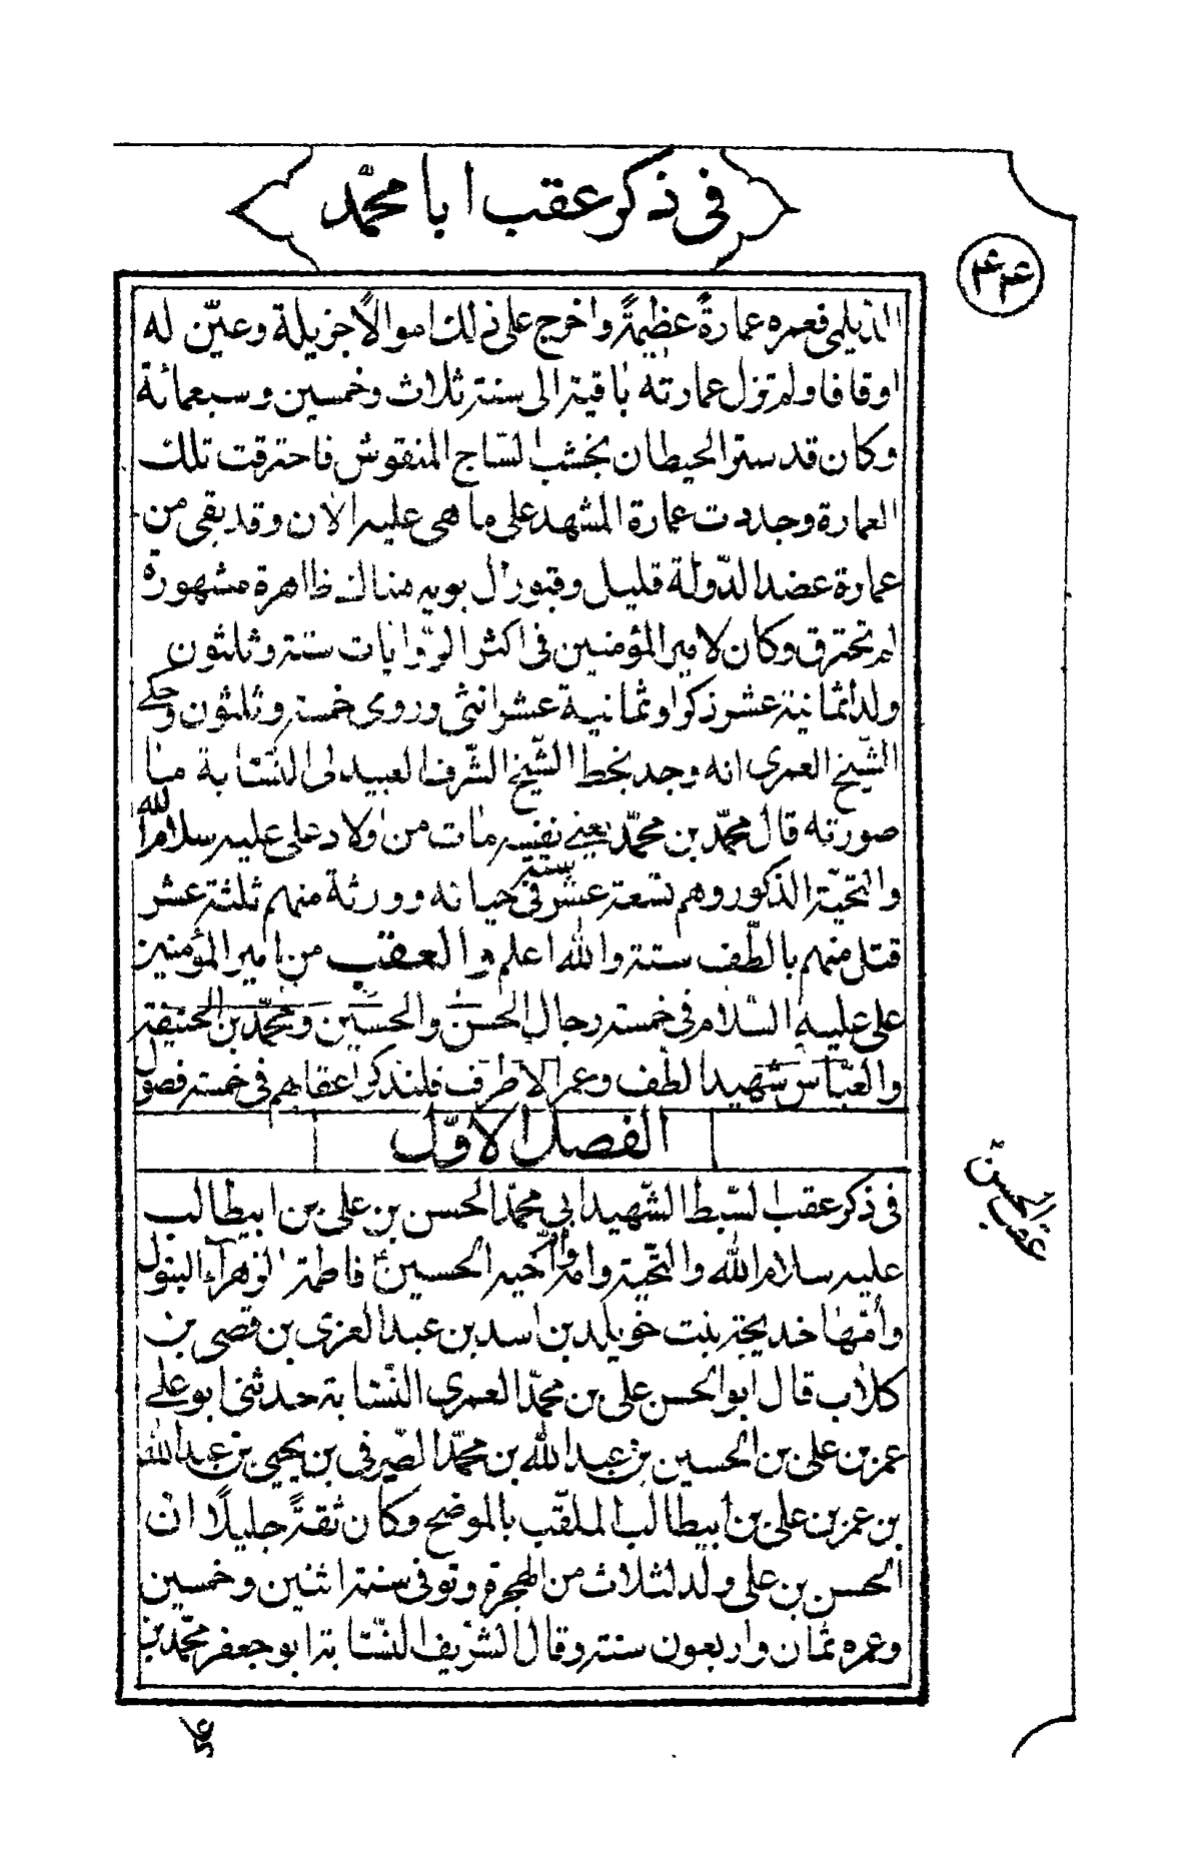 فى ذكر عقب ابا محمّد
٤٤
الديلمى فعمره عمارةً عظيمةً واخرج على ذلك اموالًا جزيلة وعيّن له
اوقافا ولم تزل عمارته باقية الى سنة ثلاث وخمسين وسبعمائة
وكان قد ستر الحيطان بخشب السّاج المنقوش فاحترقت تلك
العمارة وجددت عمارة المشهد على ما هى عليه الان وقد بقى من
عمارة عضد الدّولة قليل وقبور آل بويه هناك ظاهرة مشهورة
لم تحترق وكان لامير المؤمنين فى اكثر الرّوايات ستة وثلثون
ولدا ثمانية عشر ذكرا وثمانية عشر انثى وروى خمسة وثلثون وحكى
الشّيخ العمرى انه وجد بخط الشّيخ الشّرف العبيدلى النّسّابة ما
صورته قال محمّد بن محمّد يعنى نفسه مات من اولاد على عليه سلام الله
والتحيّة الذكور وهم تسعة عشر ستّة فى حياته وورثة منهم ثلثة عشر
قتل منهم بالطّف ستة والله اعلم والعقب من امير المؤمنين
على عليه السّلام فى خمسة رجال الحسن والحسين ومحمّد بن الحنيفة
والعبّاس شهيد الطّف وعمر الاطرف فلنذكر اعقابهم فى خمسة فصول
الفصل الاوّل
فى ذكر عقب السّبط الشّهيد ابى محمّد الحسن بن على بن ابيطالب
عليه سلام الله والتّحيّة وامّه وامّ اخيه الحسين فاطمة الزهرآء البتول
وامّها خديجة بنت خويلد بن اسد بن عبد العزى بن قصى بن
كلاب قال ابو الحسن على بن محمّد العمرى النّسّابة حدثنى ابو على
عمر بن على بن الحسين بن عبد الله بن محمّد الصّيرفى بن يحيى بن عبد الله
بن عمر بن على بن ابيطالب الملقّب بالموضح وكان ثقةً جليلًا ان
الحسن بن على ولد لثلاث من الهجرة وتوفى سنة اثنين وخمسين
وعمره ثمان واربعون سنة وقال الشريف النّسّابة ابو جعفر محمّد بن
عقب الحسن